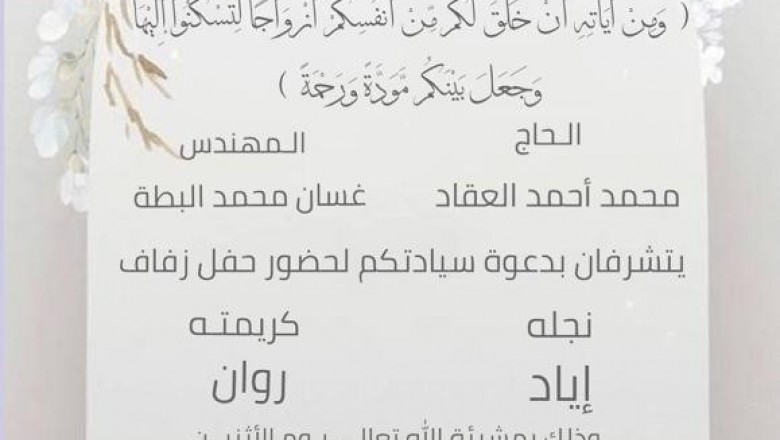 ( وَمِنْ آيَاتِهِ أَنْ خَلَقَ لَكُم مِّنْ أَنفُسِكُمْ أَزْوَاجًا لِّتَسْكُنُوا إِلَيْهَا
وَجَعَلَ بَيْنَكُم مَّوَدَّةً وَرَحْمَةً )
الـحاج
المهندس
محمد أحمد العقاد
غسان محمد البطة
يتشرفان بدعوة سيادتكم لحضور حفل زفاف
نجله
كريمتـه
إياد
روان
وذلك بمشيئة الله تعالى يـوم الأثنيـن